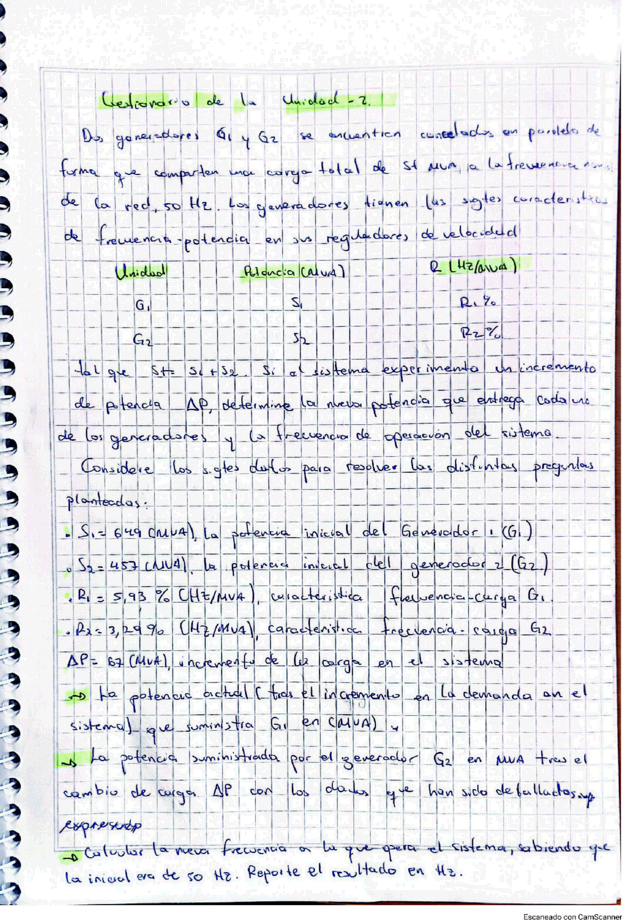 Cuestionario de la Unidad - 2.
Dos generadores G1 y G2 se encuentren conectados en paralelo de
forma que comparten una carga total de St MVA, a la frecuencia
de la red, 50 Hz. Los generadores tienen las sgtes caracteristicas
de frecuencia-potencia en sus reguladores de velocidad
Unidad Potencia (MVA) R (HZ/MVA)
G1 S1 R1 %
G2 S2 R2 %
tal que St= S1 + S2. Si el sistema experimenta un incremento
de potencia ΔP, determine la nueva potencia que entrega cada uno
de los generadores y la frecuencia de operación del sistema.
Considere los sgtes datos para resolver las distintas preguntas
planteadas:
• S1 = 649 (MVA), La potencia inicial del Generador 1 (G1)
• S2 = 457 (MVA), la potencia inicial del generador 2 (G2)
• R1 = 5,93 % (HZ/MVA), caracteristica frecuencia-carga G1
• R2 = 3,29 % (HZ/MVA), caracteristica frecuencia-carga G2
ΔP = 67 (MVA), incremento de la carga en el sistema
→ La potencia actual (tras el incremento en la demanda en el
sistema) que suministra G1 en (MVA)
→ La potencia suministrada por el generador G2 en MVA tras el
cambio de carga ΔP con los datos que han sido detallados
→ Calcular la nueva frecuencia a la que opera el sistema, sabiendo que
la inicial era de 50 Hz. Reporte el resultado en Hz.
Escaneado con CamScanner